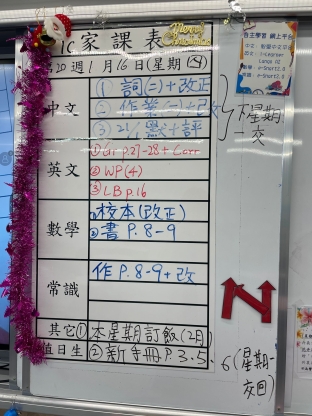 1C家課表
Merry Christmas
第20週1月16日(星期四)
中文
① 詞(二)+改正
② 作業(一)+改
③ 21/1 默+評
下星期一交
英文
① Gr p.27-28 + Corr
② WP(4)
③ LB p.16
數學
① 校本(改正)
② 書 P.8-9
常識
作 P.8-9+改
其它 ① 本星期訂飯(2月)
值日生 ② 新手冊 P.3.5.6(星期一交回)
自主學習 網上平台